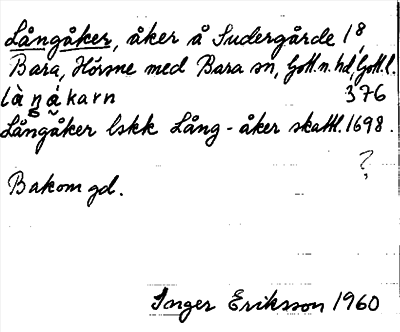 Långåker, åker å Sudergårde 1,8
Bara, Hörsne med Bara sn, Gotl.n.hd, Gotl.l.
làŋákarn 376
Långåker lskk Lång-åker skattl. 1698.
?
Bakom gd.
Inger Eriksson 1960